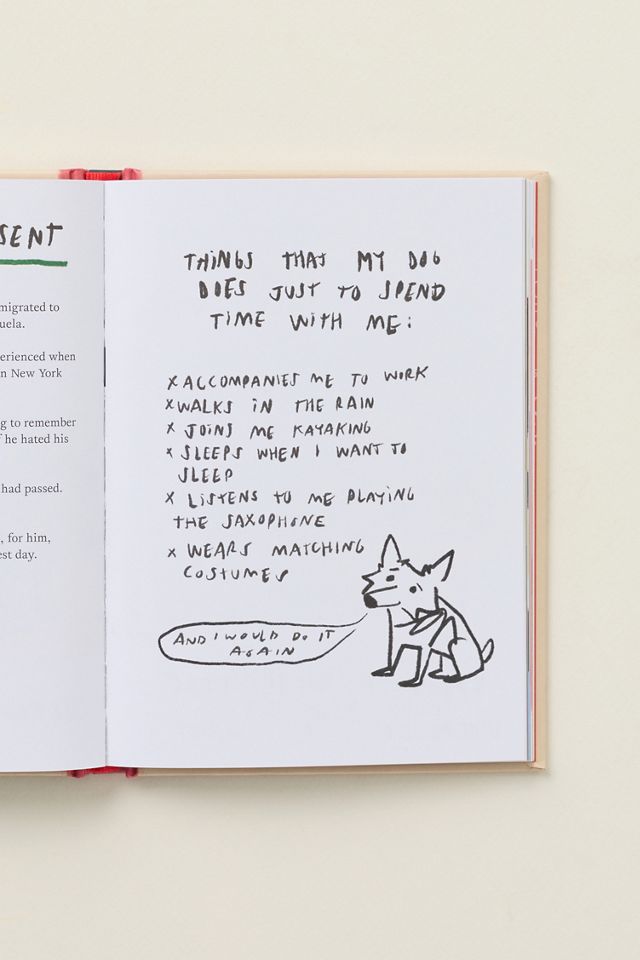 SENT
migrated to
uela.
erienced when
n New York
g to remember
f he hated his
had passed.
, for him,
est day.
THINGS THAT MY DOG
DOES JUST TO SPEND
TIME WITH ME:
x ACCOMPANIES ME TO WORK
x WALKS IN THE RAIN
x JOINS ME KAYAKING
x SLEEPS WHEN I WANT TO
SLEEP
x LISTENS TO ME PLAYING
THE SAXOPHONE
x WEARS MATCHING
COSTUMES
AND I WOULD DO IT
AGAIN